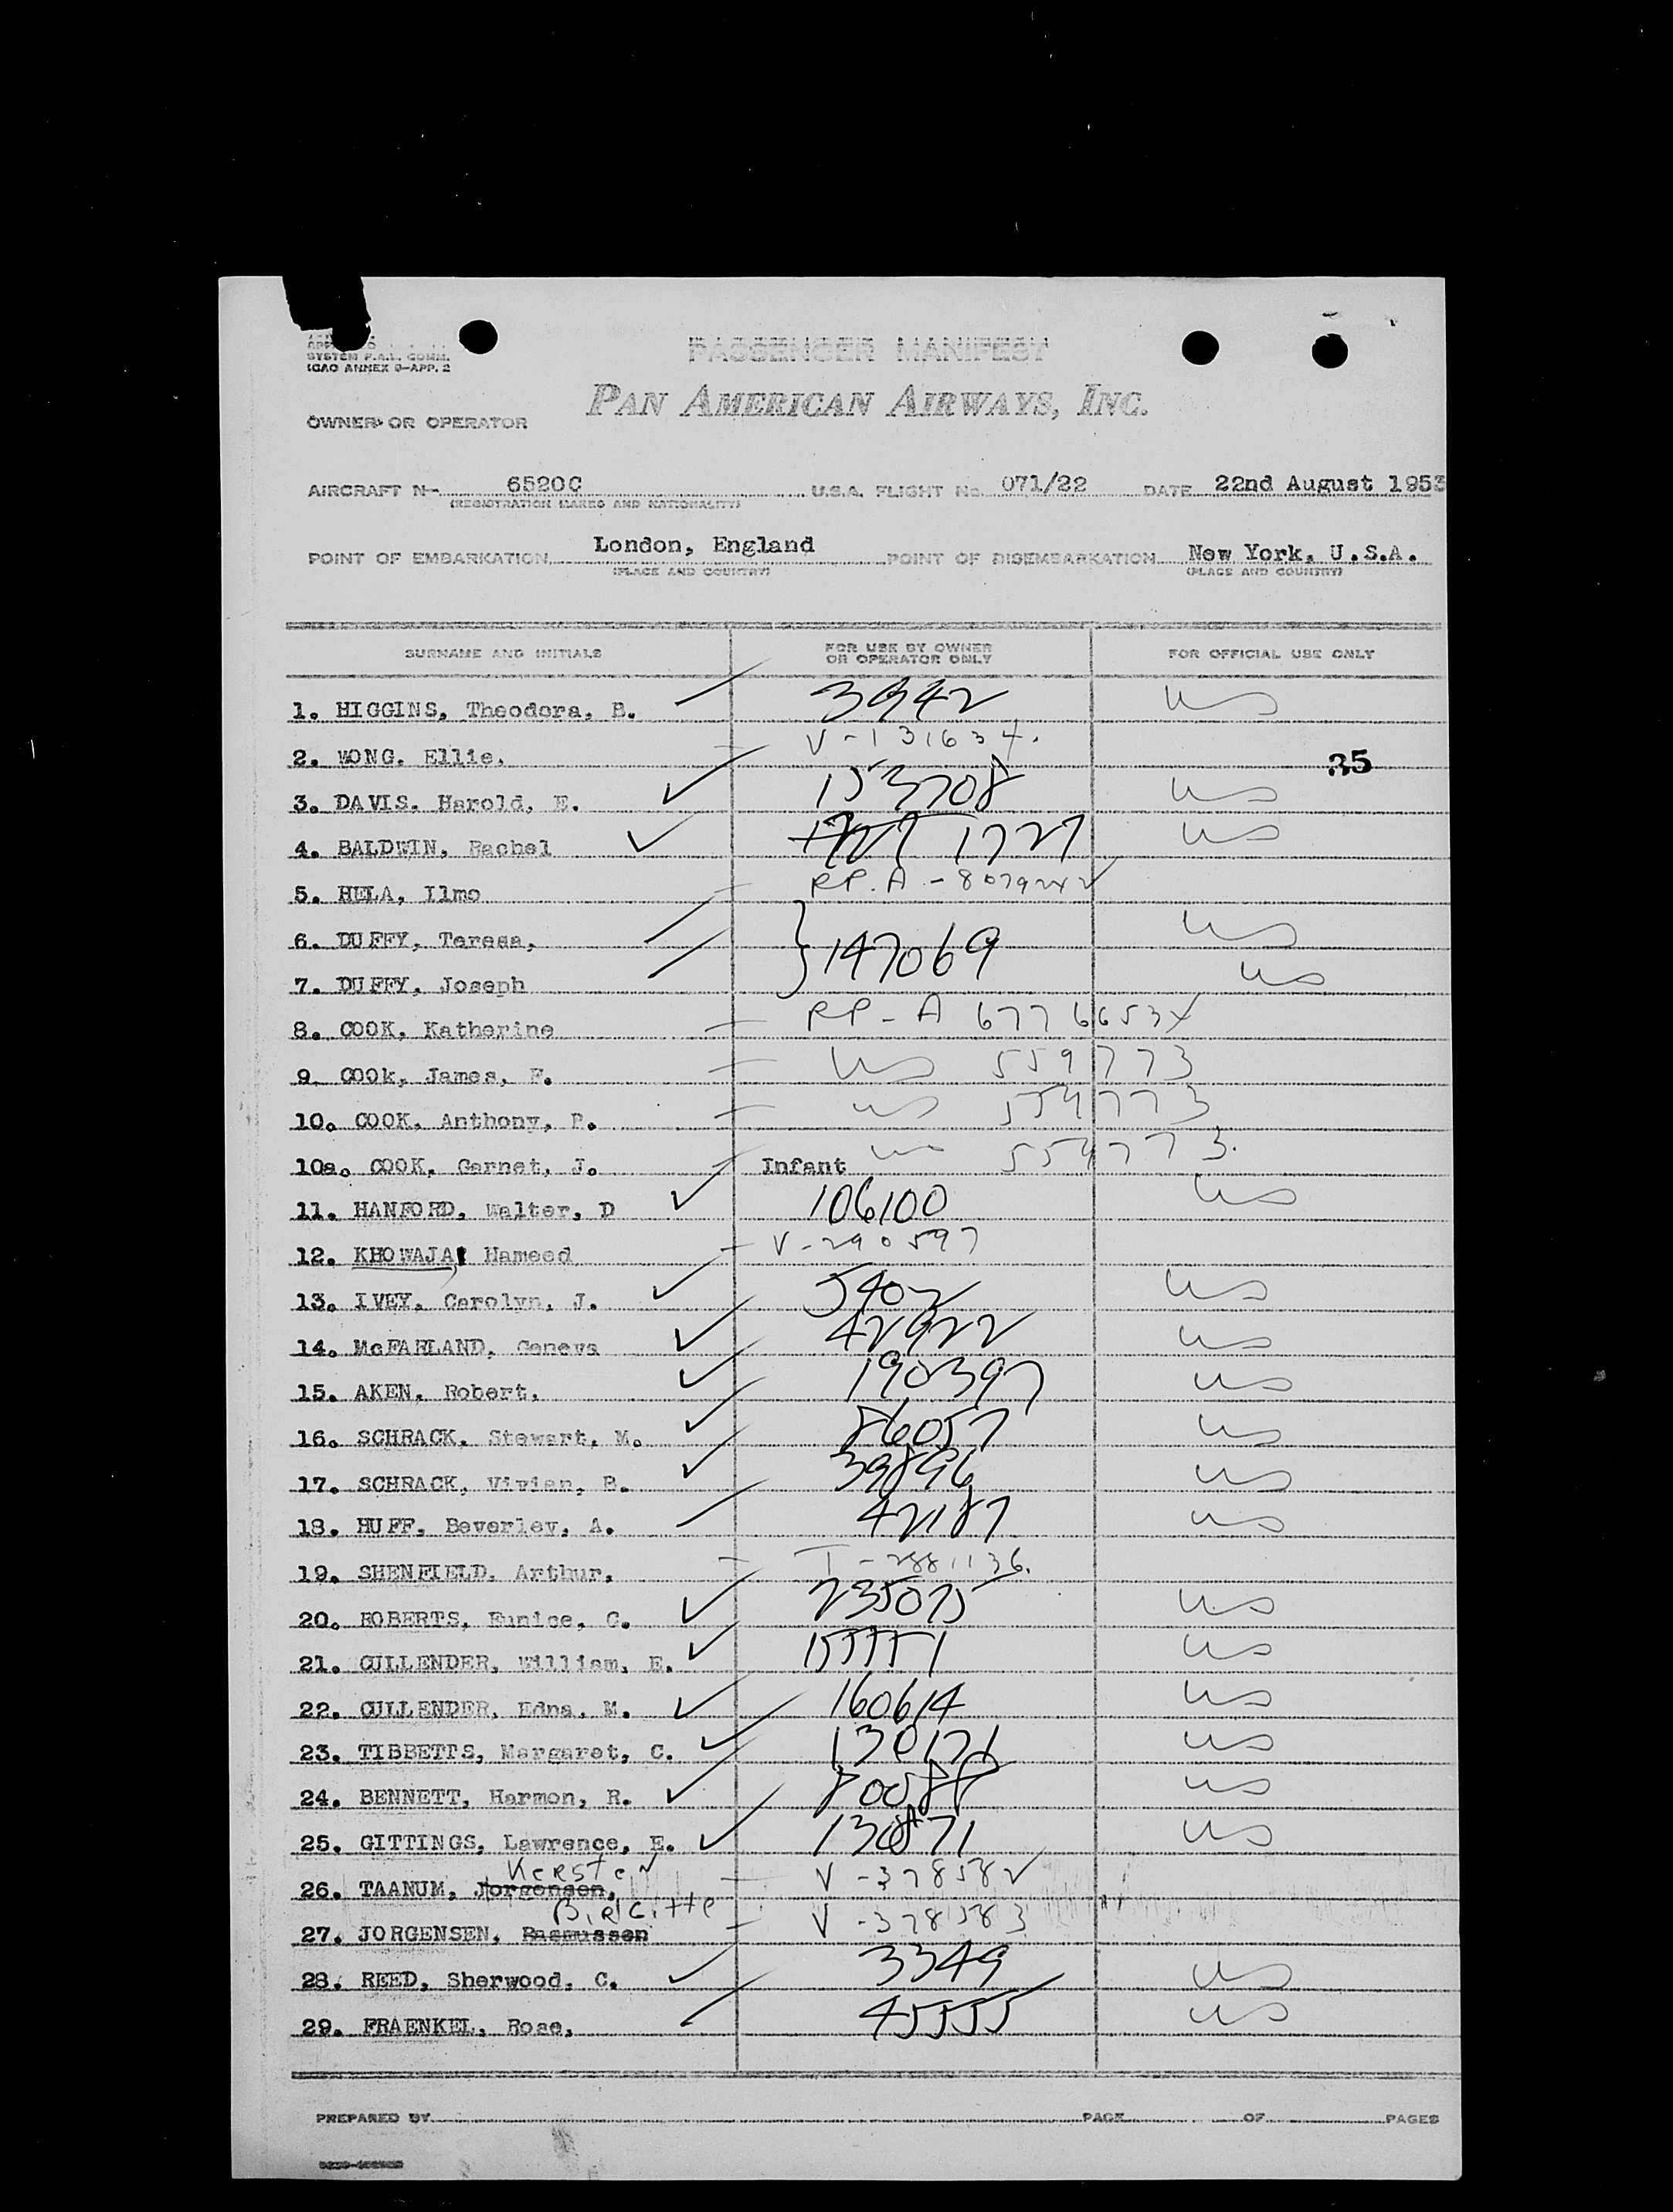 SYSTEM P.A.L. COMM.
ICAO ANNEX 9-APP. 2
PASSENGER MANIFEST
PAN AMERICAN AIRWAYS, INC.
OWNER OR OPERATOR
AIRCRAFT No 6520C U.S.A. FLIGHT No. 071/22 DATE 22nd August 1953
(REGISTRATION MARKS AND NATIONALITY)
POINT OF EMBARKATION London, England POINT OF DISEMBARKATION New York, U.S.A.
(PLACE AND COUNTRY) (PLACE AND COUNTRY)
SURNAME AND INITIALS FOR USE BY OWNER OR OPERATOR ONLY FOR OFFICIAL USE ONLY
1. HIGGINS, Theodora, B. 3942 US
2. WONG, Ellie. V-131634. 35
3. DAVIS, Harold, E. 153708 US
4. BALDWIN, Rachel 1727 1727 US
5. HELA, Ilmo RP.A-
6. DUFFY, Teresa, 147069 US
7. DUFFY, Joseph US
8. COOK, Katherine RP-A
9. COOk, James, F. US 559773
10. COOK, Anthony, P. US 559773
10a. COOK, Garnet, J. Infant US 559773.
11. HANFORD, Walter, D 106100 US
12. KHOWAJA, Hameed V-290597
13. IVEY, Carolyn, J. 5402 US
14. McFARLAND, Geneva 42922 US
15. AKEN, Robert, 190397 US
16. SCHRACK, Stewart, M. 86057 US
17. SCHRACK, Vivian, B. 39896 US
18. HUFF, Beverley, A. 42187 US
19. SHENFIELD, Arthur, T-2881136.
20. ROBERTS, Eunice, C. 235075 US
21. CULLENDER, William, E. 155551 US
22. CULLENDER, Edna, M. 160614 US
23. TIBBETTS, Margaret, C. 130171 US
24. BENNETT, Harmon, R. 80088 US
25. GITTINGS, Lawrence, E. 130871 US
Kersten
26. TAANUM, Jorgensen, V-378582
Birgitte
27. JORGENSEN, Rasmussen V-378583
28. REED, Sherwood, C. 3349 US
29. FRAENKEL, Rose, 45555 US
PREPARED BY PAGE OF PAGES